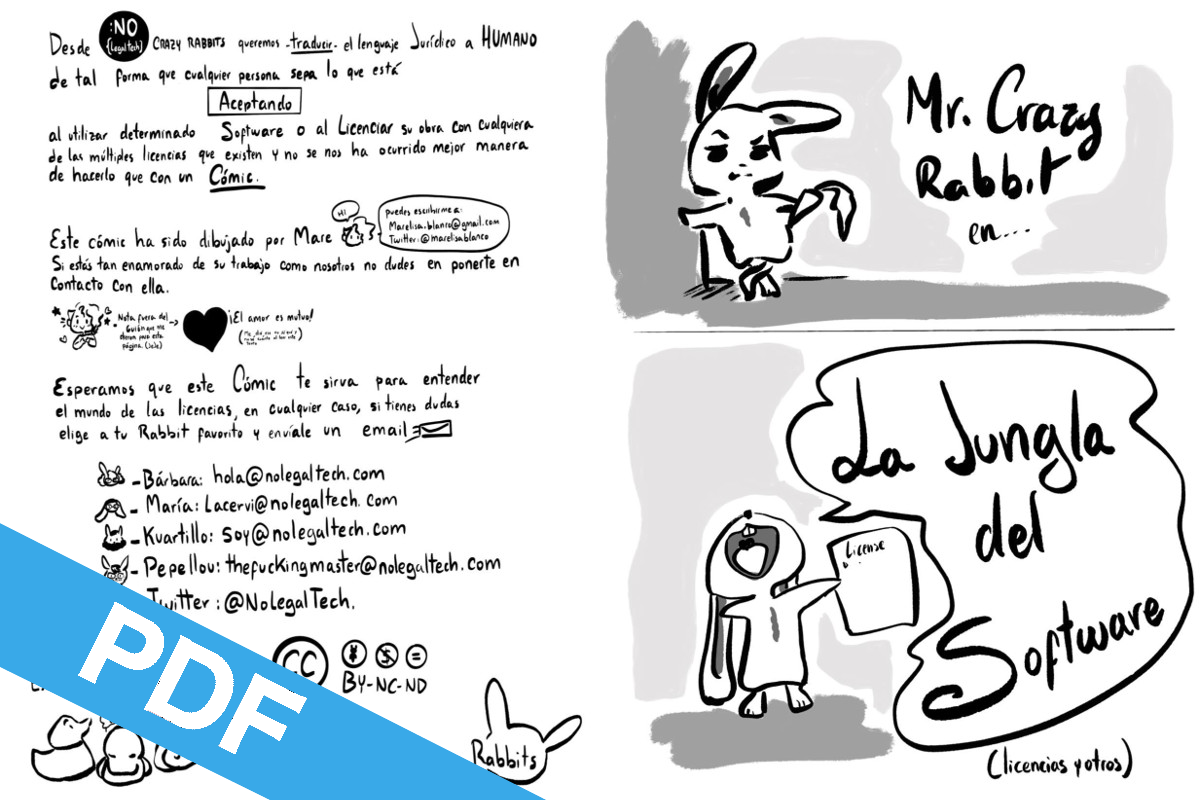 Desde :NO {legaltech} CRAZY RABBITS queremos -traducir- el lenguaje Jurídico a HUMANO
de tal forma que cualquier persona sepa lo que está
Aceptando
al utilizar determinado Software o al Licenciar su obra con cualquiera
de las múltiples licencias que existen y no se nos ha ocurrido mejor manera
de hacerlo que con un Cómic.
Hi!
puedes escribirme a:
Marelisa.blanco@gmail.com
Twitter: @marelisablanco
Este cómic ha sido dibujado por Mare
Si estás tan enamorado de su trabajo como nosotros no dudes en ponerte en
Contacto con ella.
Nota fuera del
Guión que me
dieron para esta
página. (Jeje)
¡El amor es mutuo!
Esperamos que este Cómic te sirva para entender
el mundo de las licencias, en cualquier caso, si tienes dudas
elige a tu Rabbit favorito y envíale un email
- Bárbara: hola@nolegaltech.com
- María: Lacervi@nolegaltech.com
- Kuartillo: soy@nolegaltech.com
- Pepellou: thefuckingmaster@nolegaltech.com
Twitter: @NoLegalTech.
CC
BY-NC-ND
Rabbits
PDF
Mr. Crazy
Rabbit
en...
La Jungla
del
Software
License
(licencias y otros)